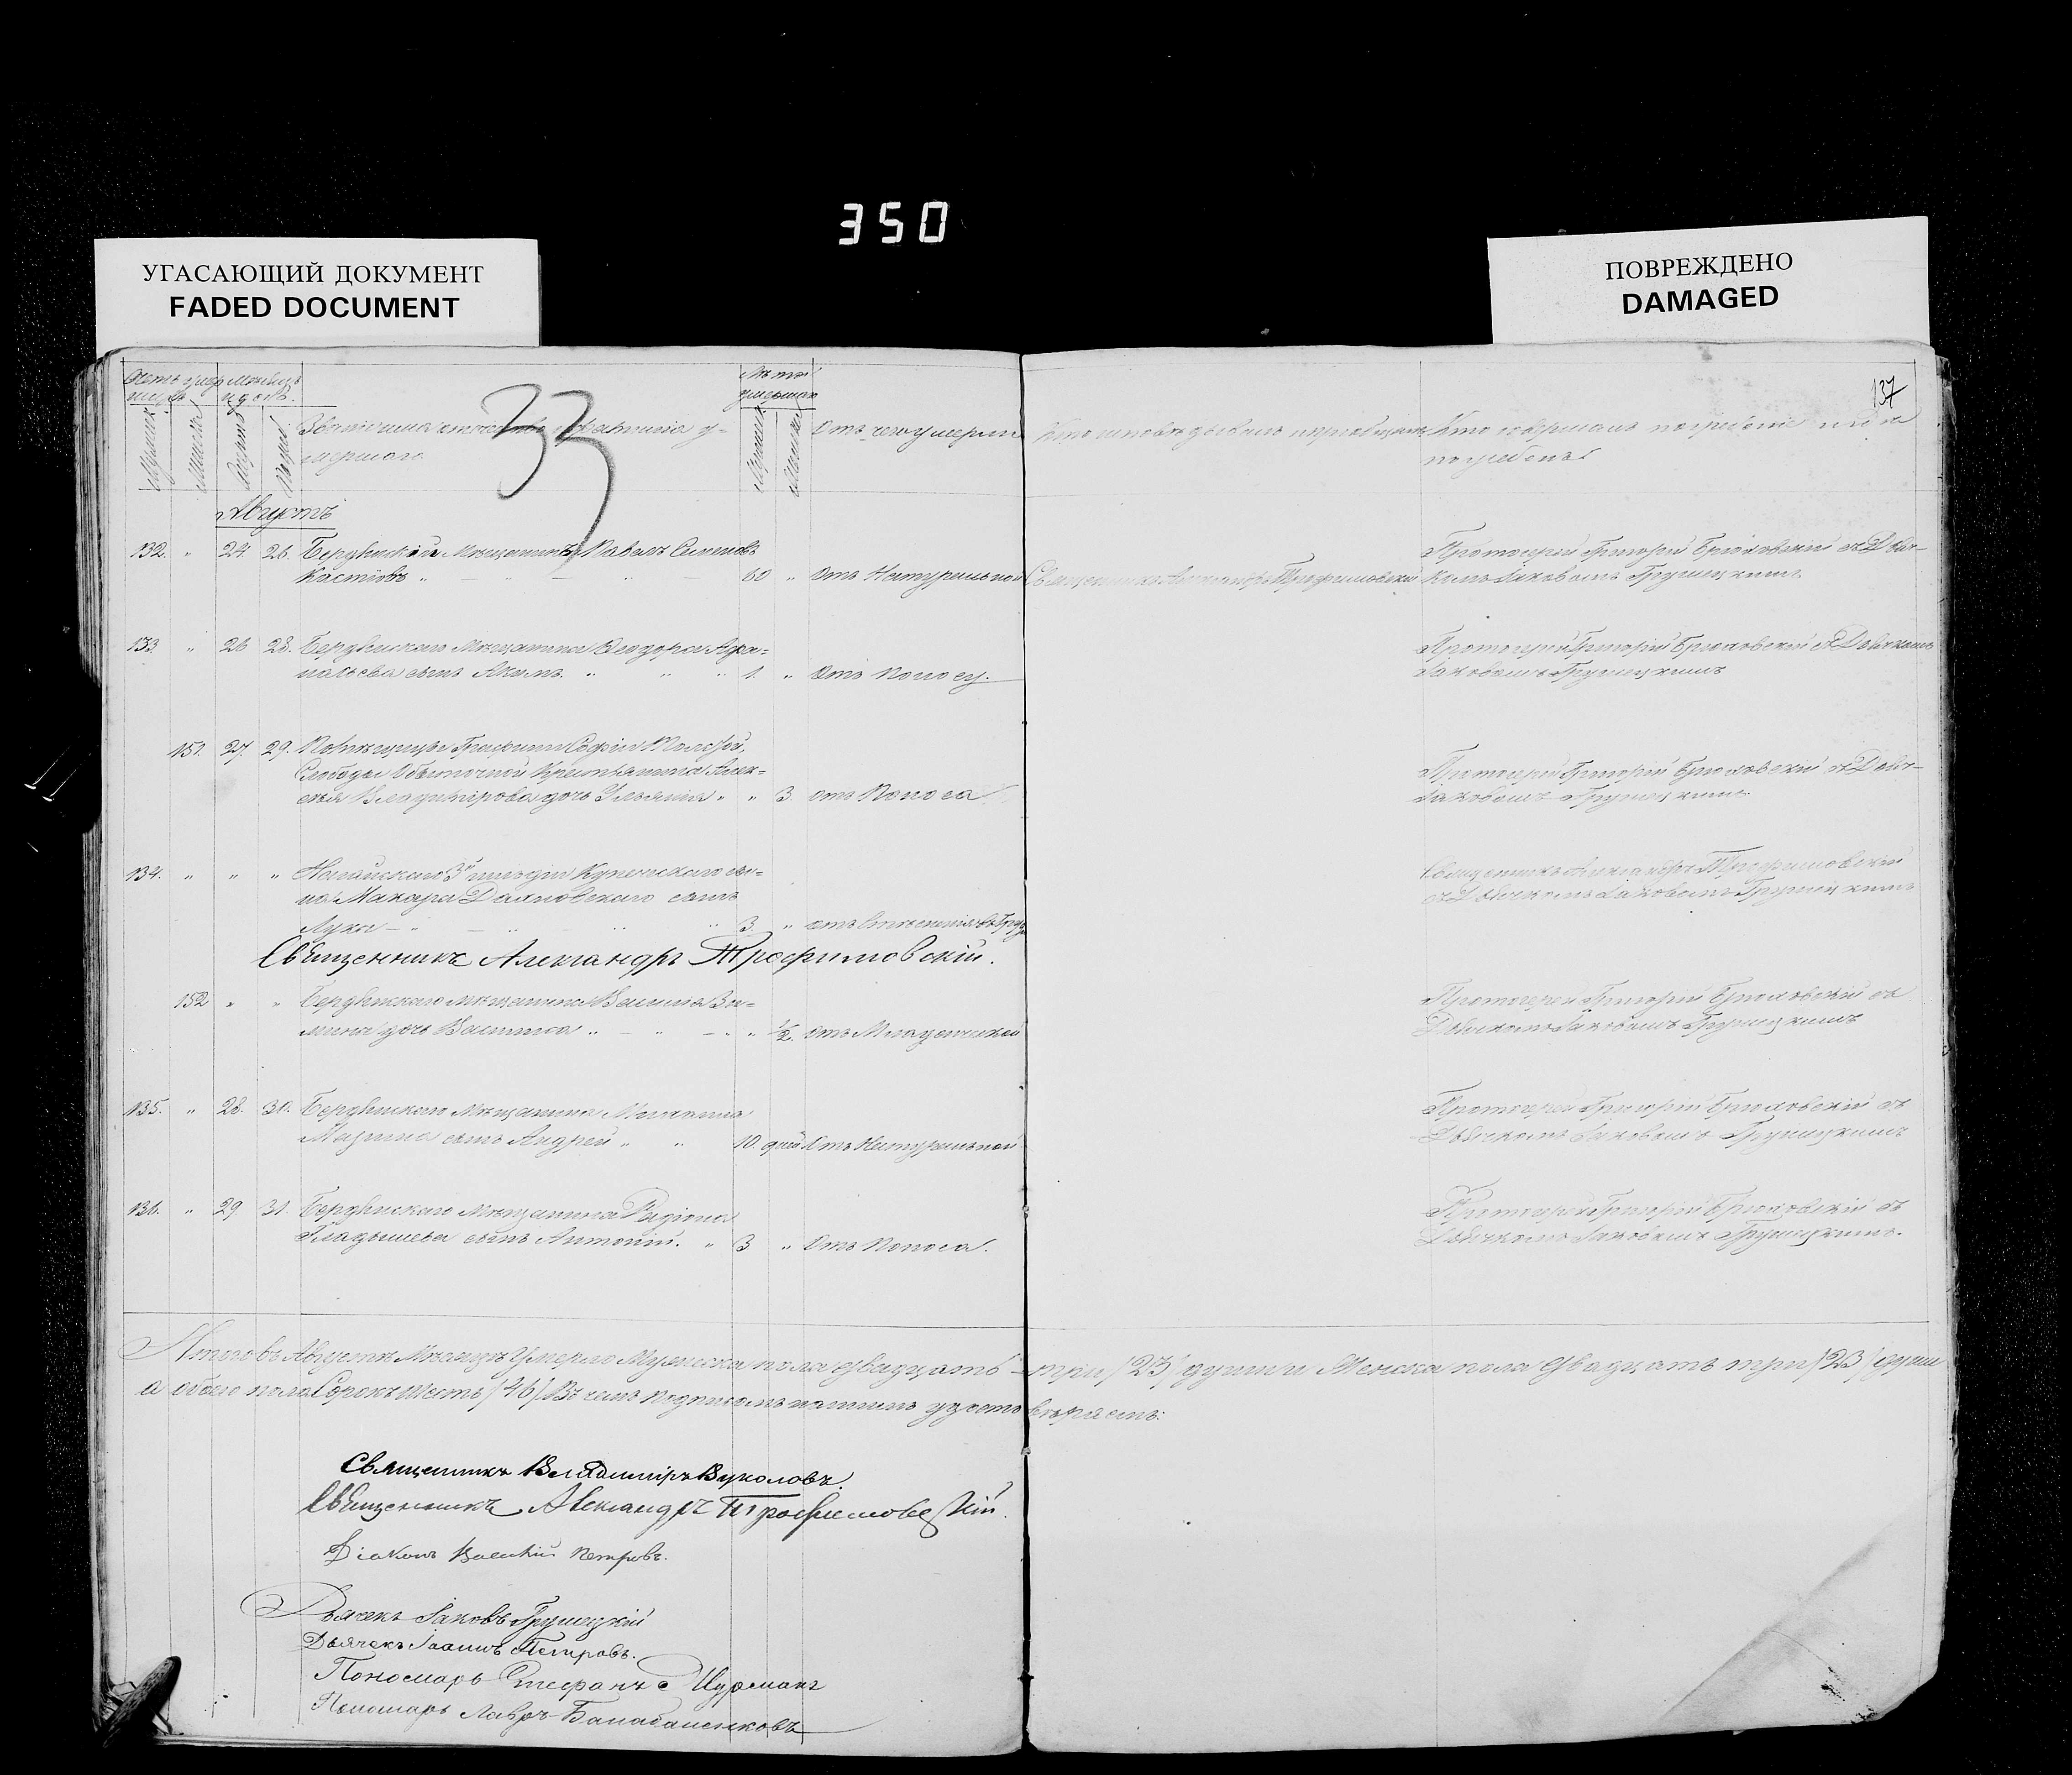 350
УГАСАЮЩИЙ ДОКУМЕНТ
FADED DOCUMENT
ПОВРЕЖДЕНО
DAMAGED
137
33
Званіе имя отчество и фамилія у-
мершаго
Лѣта
умершаго
Отъ чего умеръ
Кто исповѣдывалъ и пріобщалъ
Кто совершалъ погребеніе и гдѣ
погребенъ
Августъ
132. " 24 26. Бердянскій Мѣщанинъ Павелъ Семеновъ
60 " Отъ Натуральной Священникъ Александръ Трофимовскій
Протоіерей Григорій Бриловскій съ Дьяч-
комъ Іаковомъ Грушецкимъ
133 " 26 28. Бердянскаго Мѣщанина Ѳеодора
сынъ Акимъ " " " 1. " Отъ Поносу.
Протоіерей Григорій Бриловскій съ Дьячкомъ
Іаковомъ Грушецкимъ
151. 27. 29. Помѣщицы Графини Софіи Толстой,
Слободы Обыточной Крестьянина Алек-
сѣя Владимірова дочь Ульянія " " 3 отъ Поноса
Протоіерей Григорій Бриловскій съ Дьяч-
Іаковомъ Грушецкимъ
134. " " " Ногайскаго 3й гильдіи Купеческаго сы-
на Макара сынъ
Лука 3. "
Священникъ Александръ Трофимовскій
съ Дьячкомъ Іаковомъ Грушецкимъ
Священникъ Александръ Трофимовскій.
152 " " Бердянскаго Мѣщанина
дочь " " 1/2. отъ Младенческой
Протоіерей Григорій Бриловскій съ
Дьячкомъ Іаковомъ Грушецкимъ
135. " 28. 30. Бердянскаго Мѣщанина
сынъ Андрей " " 10. дней Отъ Натуральной
Протоіерей Григорій Бриловскій съ
Дьячкомъ Іаковомъ Грушецкимъ
136. " 29 31 Бердянскаго Мѣщанина Радіона
Гладышева сынъ Антоній. " 3 " Отъ Поноса.
Протоіерей Григорій Бриловскій съ
Дьячкомъ Іаковомъ Грушецкимъ.
Итого въ Августѣ Мѣсяцѣ Умерло Мужеска пола двадцать три /23/ души и Женска пола двадцать три /23/ души
а обоего пола Сорокъ Шесть /46/ Въ чемъ подписомъ нашимъ удостовѣряемъ:
Священникъ Владиміръ Вуколовъ.
Священникъ Александръ Трофимовскій.
Діаконъ Василій Петровъ.
Дьячекъ Іаковъ Грушецкій
Дьячекъ Іоаннъ Петровъ.
Пономарь Стефанъ Шурманъ
Пономарь Лавръ